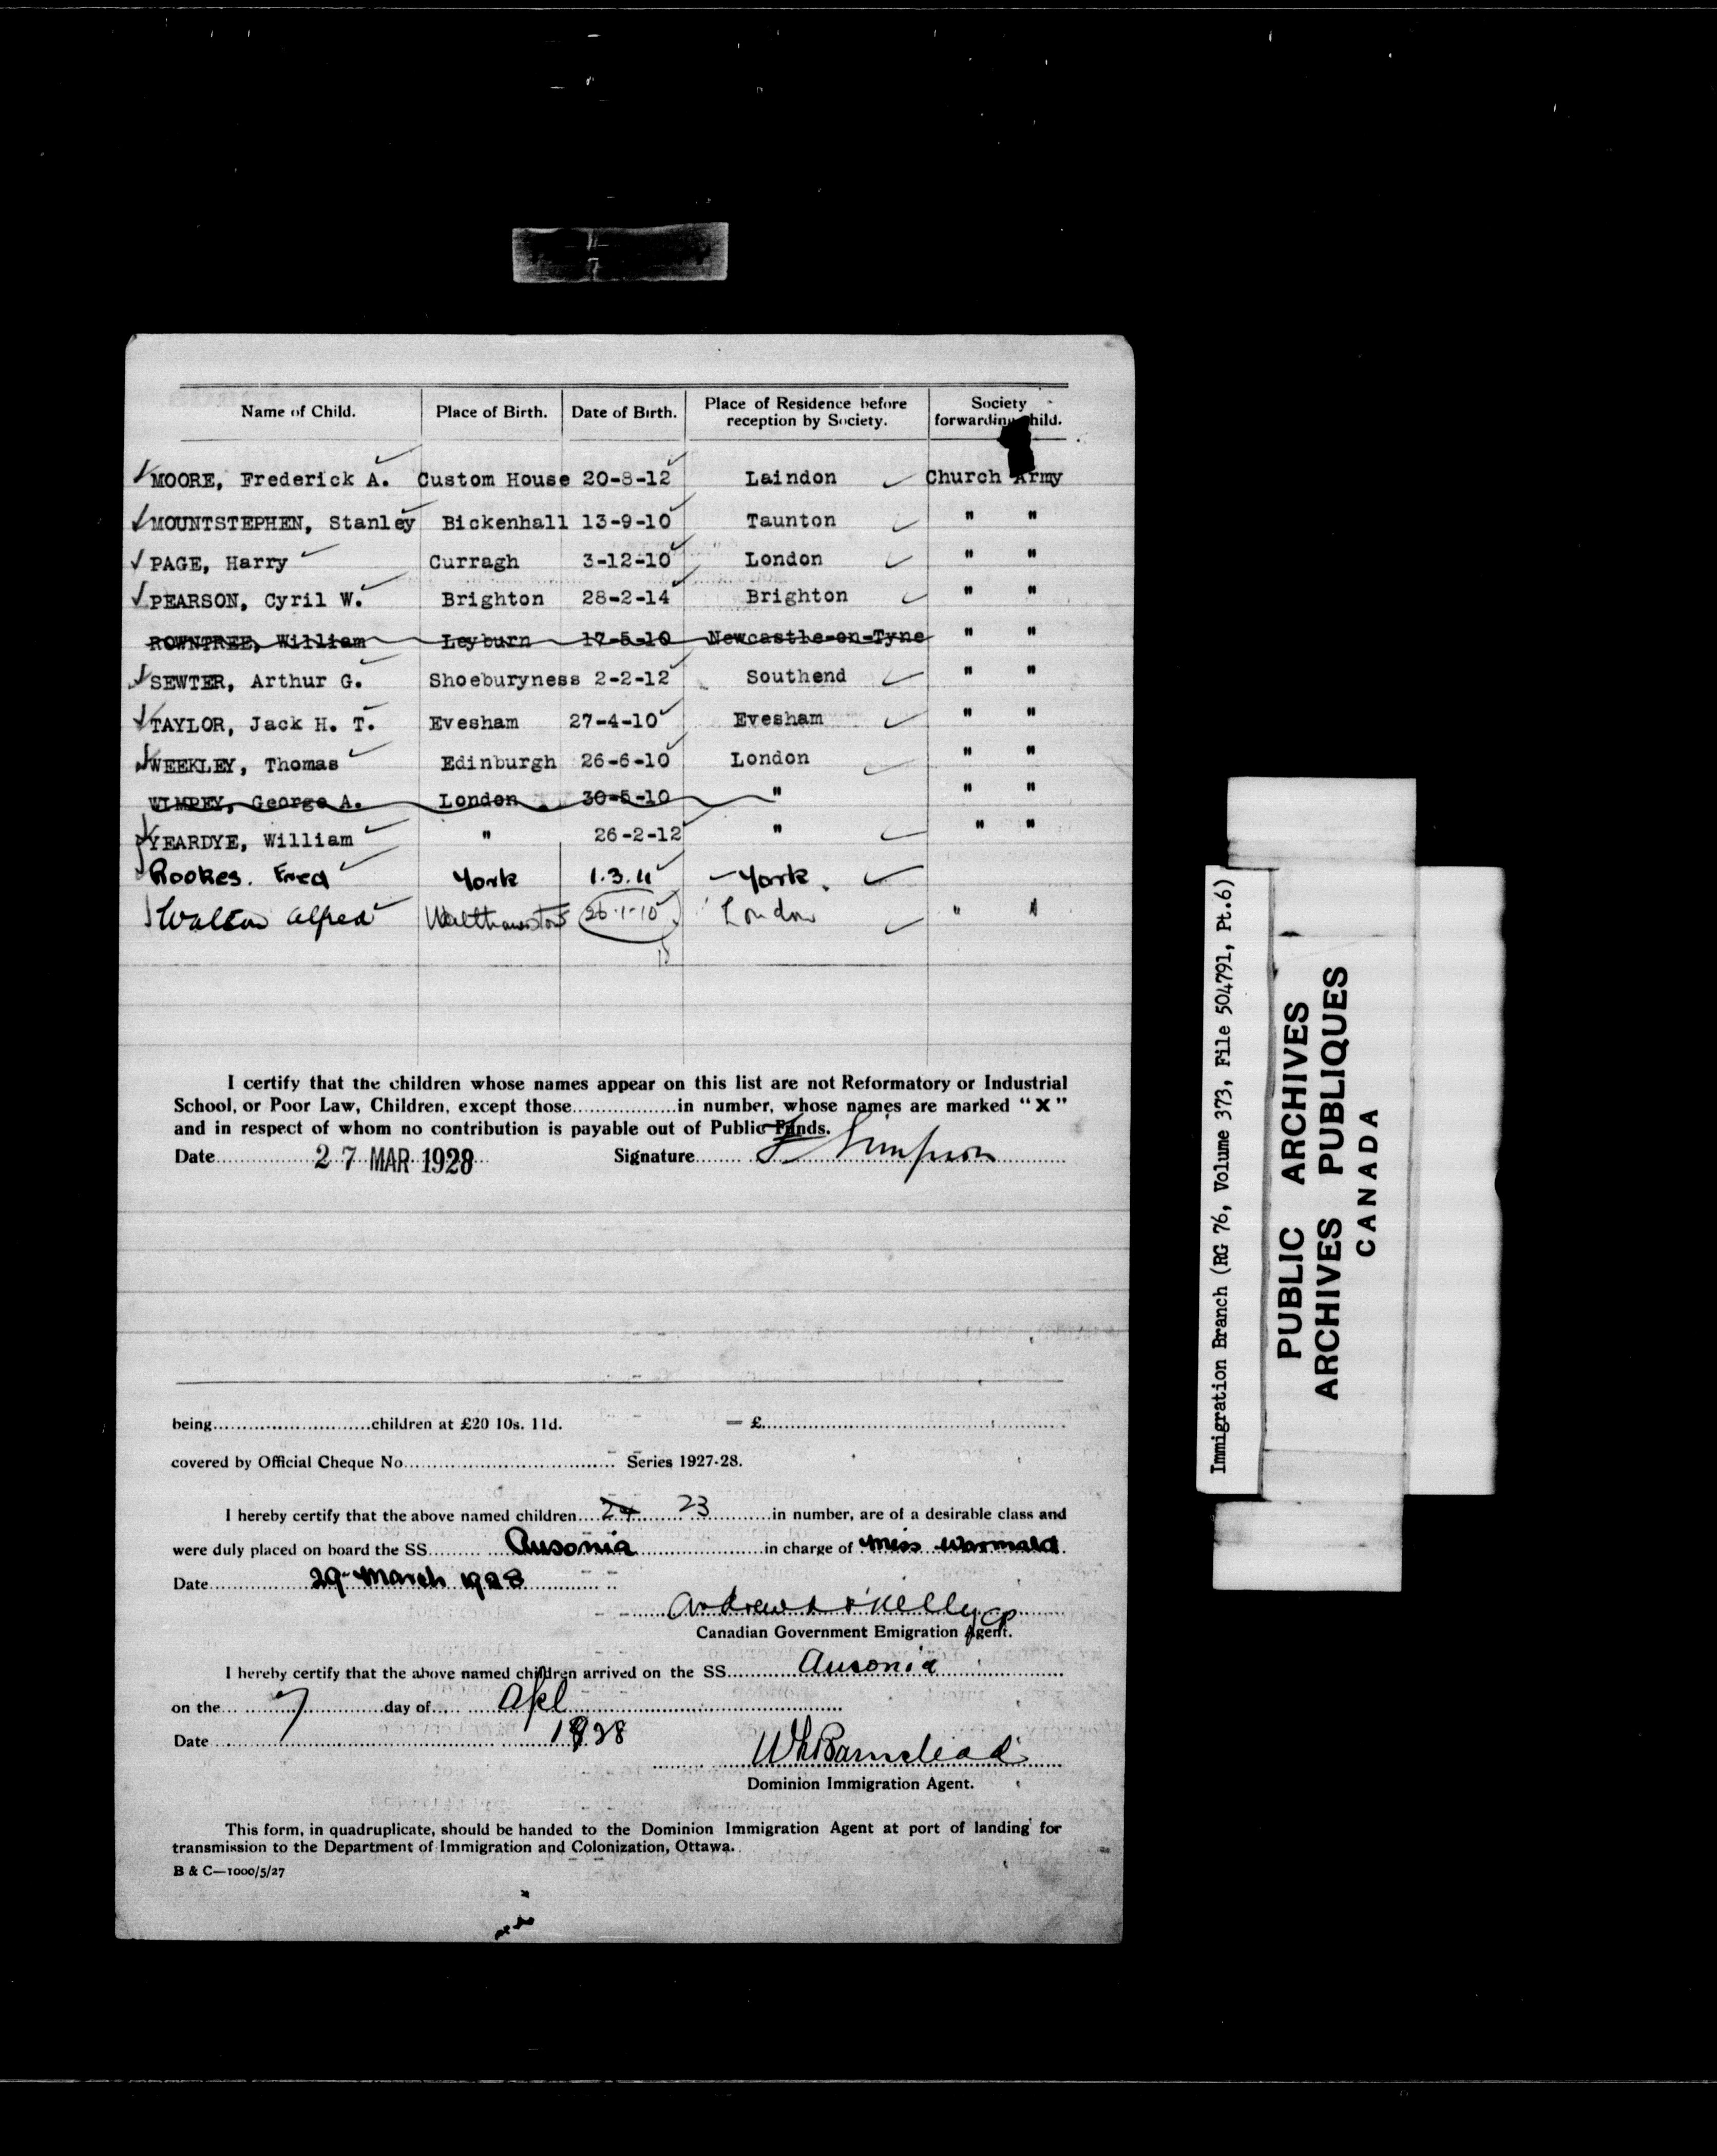 Name of Child. Place of Birth. Date of Birth. Place of Residence before reception by Society. Society forwarding Child.
MOORE, Frederick A. Custom House 20-8-12 Laindon Church Army
MOUNTSTEPHEN, Stanley Bickenhall 13-9-10 Taunton " "
PAGE, Harry Curragh 3-12-10 London " "
PEARSON, Cyril W. Brighton 28-2-14 Brighton " "
ROWNTREE, William Leyburn 17-5-10 Newcastle-on-Tyne " "
SEWTER, Arthur G. Shoeburyness 2-2-12 Southend " "
TAYLOR, Jack H. T. Evesham 27-4-10 Evesham " "
WEEKLEY, Thomas Edinburgh 26-6-10 London " "
WIMPEY, George A. London 30-5-10 " " "
YEARDYE, William " 26-2-12 " " "
Rookes. Fred York 1.3.11 York.
Walton Alfred Walthamstow 26-1-10 London " "
18
I certify that the children whose names appear on this list are not Reformatory or Industrial
School, or Poor Law, Children, except those..................in number, whose names are marked "X"
and in respect of whom no contribution is payable out of Public Funds.
Date 27 MAR 1928 Signature F Simpson
being...........................children at £20 10s. 11d. — £
covered by Official Cheque No.................................... Series 1927-28.
I hereby certify that the above named children 24 23 in number, are of a desirable class and
were duly placed on board the SS Ausonia in charge of Miss Wormald
Date 29 March 1928
Andrew O'Kelly CP
Canadian Government Emigration Agent.
I hereby certify that the above named children arrived on the SS Ausonia
on the 7 day of Apl
Date 1928
WL Barnstead
Dominion Immigration Agent.
This form, in quadruplicate, should be handed to the Dominion Immigration Agent at port of landing for
transmission to the Department of Immigration and Colonization, Ottawa.
B & C—1000/5/27
Immigration Branch (RG 76, Volume 373, File 504791, Pt.6)
PUBLIC ARCHIVES
ARCHIVES PUBLIQUES
CANADA